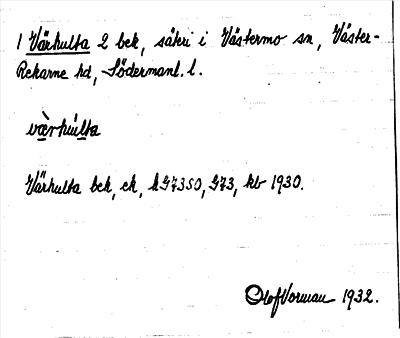 1 Värhulta 2 bek, säteri i Västermo sn, Väster-
Rekarne hd, Södermanl. l.
værhùlta
Värhulta bek, ek, kG73SO, G73, kb 1930.
Olof Vorman 1932.